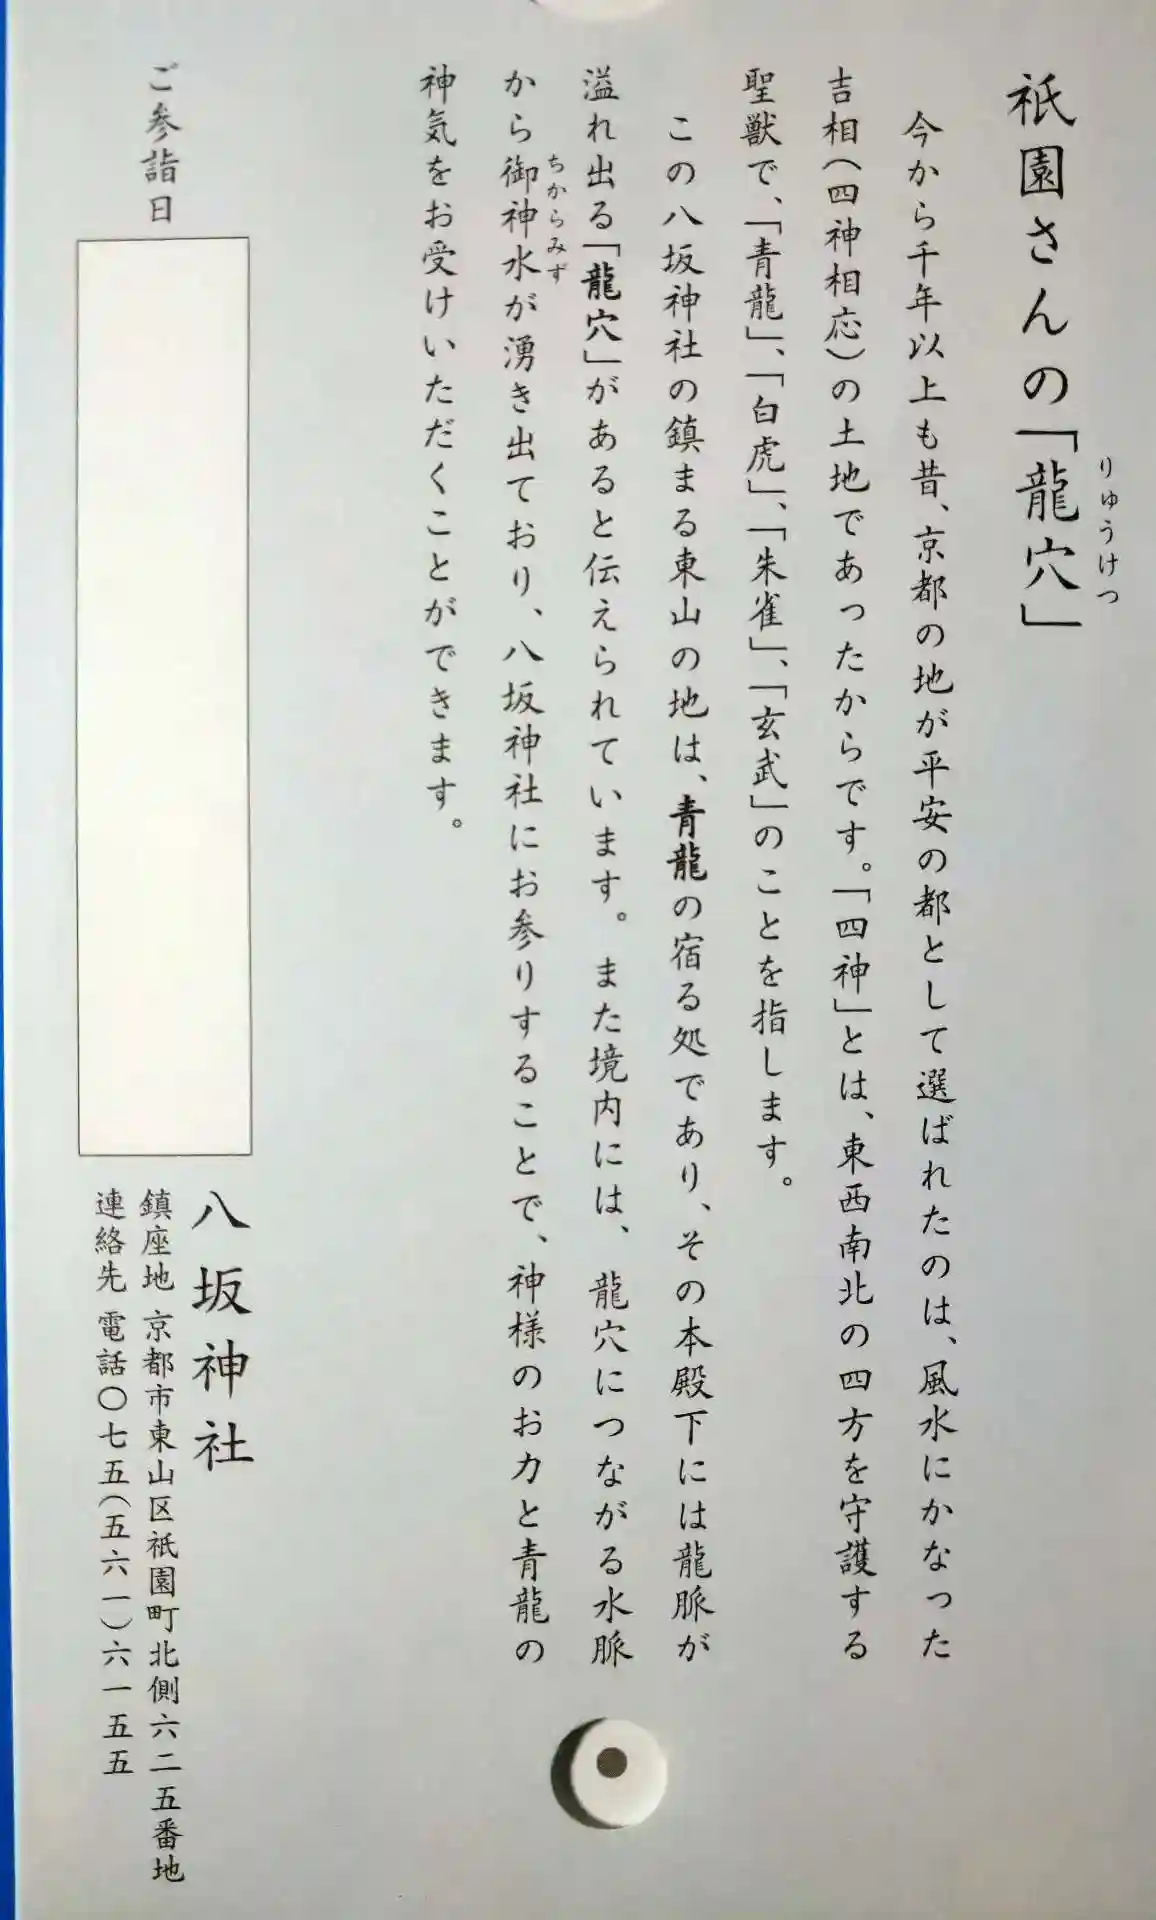 祇園さんの「龍穴」
りゅうけつ
今から千年以上も昔、京都の地が平安の都として選ばれたのは、風水にかなった
吉相(四神相応)の土地であったからです。「四神」とは、東西南北の四方を守護する
聖獣で、「青龍」、「白虎」、「朱雀」、「玄武」のことを指します。
この八坂神社の鎮まる東山の地は、青龍の宿る処であり、その本殿下には龍脈が
溢れ出る「龍穴」があると伝えられています。また境内には、龍穴につながる水脈
ちからみず
から御神水が湧き出ており、八坂神社にお参りすることで、神様のお力と青龍の
神気をお受けいただくことができます。
ご参詣日
八坂神社
鎮座地 京都市東山区祇園町北側六二五番地
連絡先 電話〇七五(五六一)六一五五